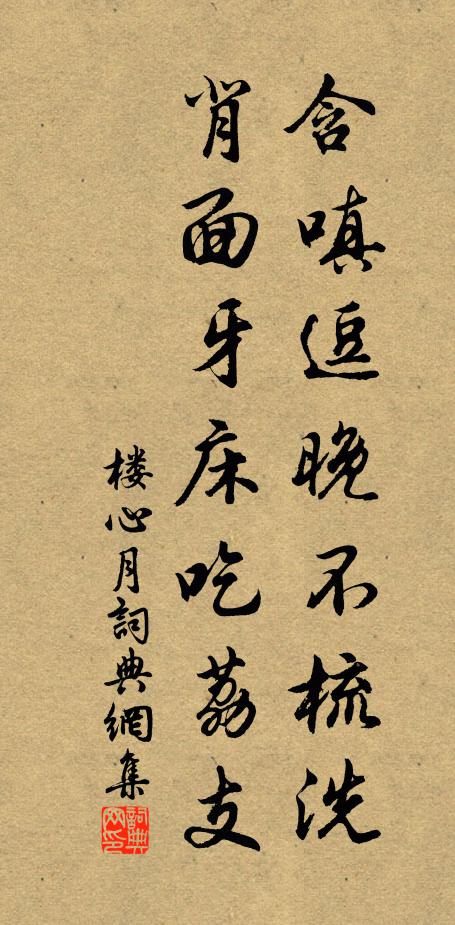 含嗔逗晚不梳洗
背面牙床吃荔支
楼心月詞典網集
詞典网印